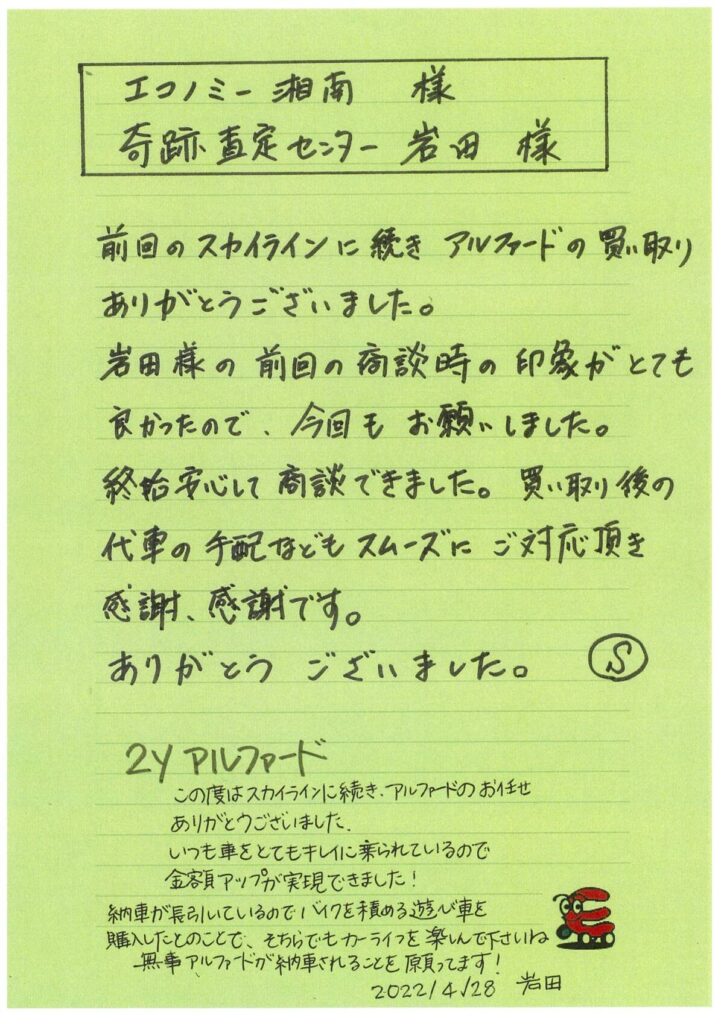 エコノミー湘南 様
奇跡査定センター 岩田 様
前回のスカイラインに続き アルファードの買い取り
ありがとうございました。
岩田様の前回の商談時の印象がとても
良かったので、今回も お願いしました。
終始安心して商談できました。買い取り後の
代車の手配などもスムーズにご対応頂き
感謝、感謝です。
ありがとう ございました。 S
2Y アルファード
この度はスカイラインに続き、アルファードのお任せ
ありがとうございました。
いつも車をとてもキレイに乗られているので
金額アップが実現できました!
納車が長引いているのでバイクを積める遊び車を
購入したとのことで、そちらでもカーライフを楽しんで下さいね
無事アルファードが納車されることを願ってます!
2022/4/28 岩田